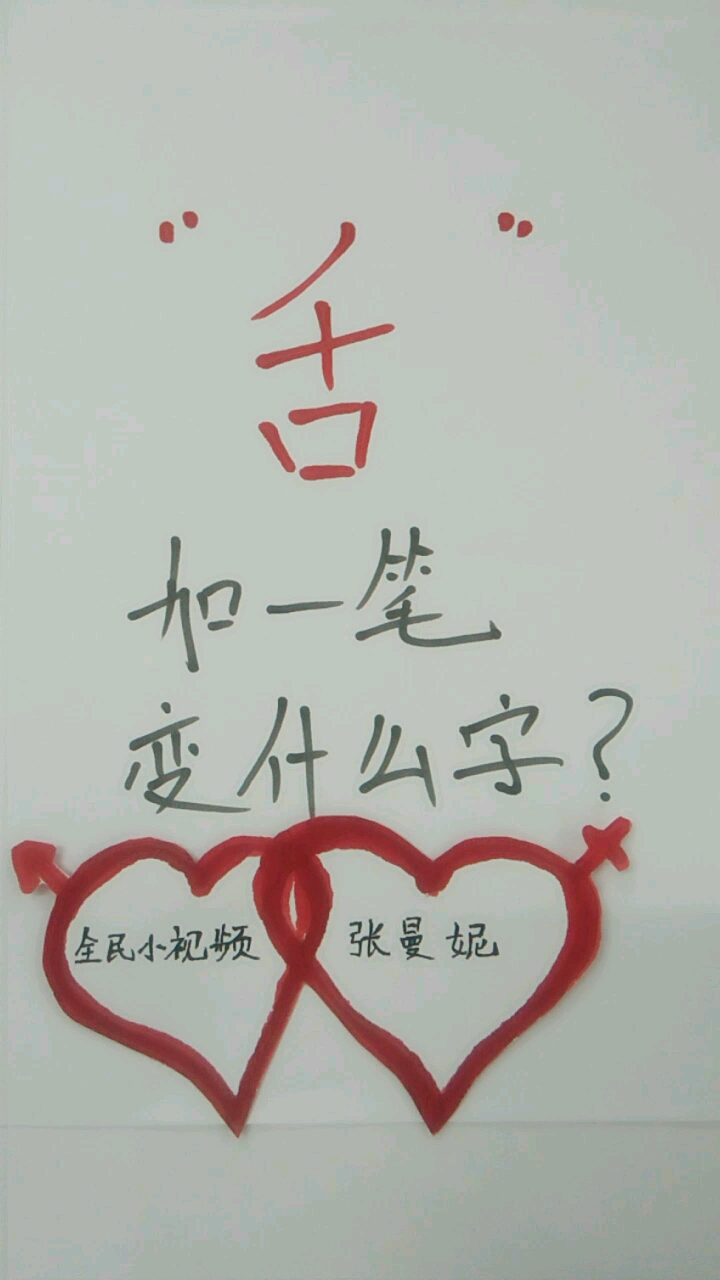 “舌”
加一笔
变什么字?
全民小视频 张曼妮